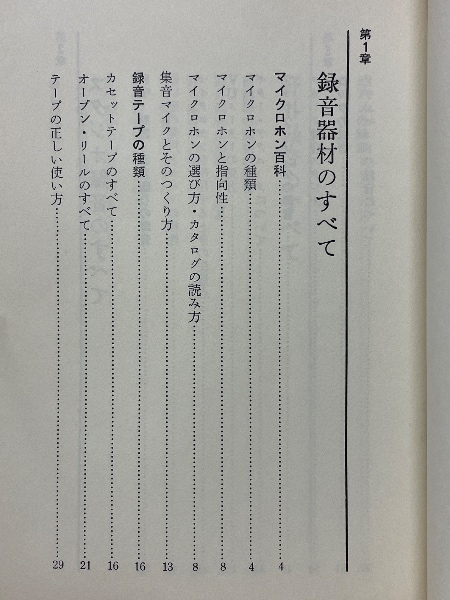 第1章
録音器材のすべて
マイクロホン百科……………………4
マイクロホンの種類……………………4
マイクロホンと指向性……………………8
マイクロホンの選び方・カタログの読み方……………………8
集音マイクとそのつくり方……………………13
録音テープの種類……………………16
カセットテープのすべて……………………16
オープン・リールのすべて……………………21
テープの正しい使い方……………………29